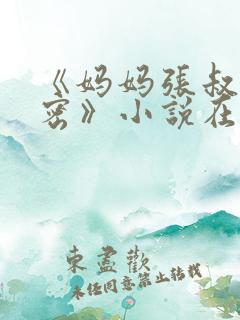 《妈妈張叔
密》小說在
東盡歡
未经同意禁止转载